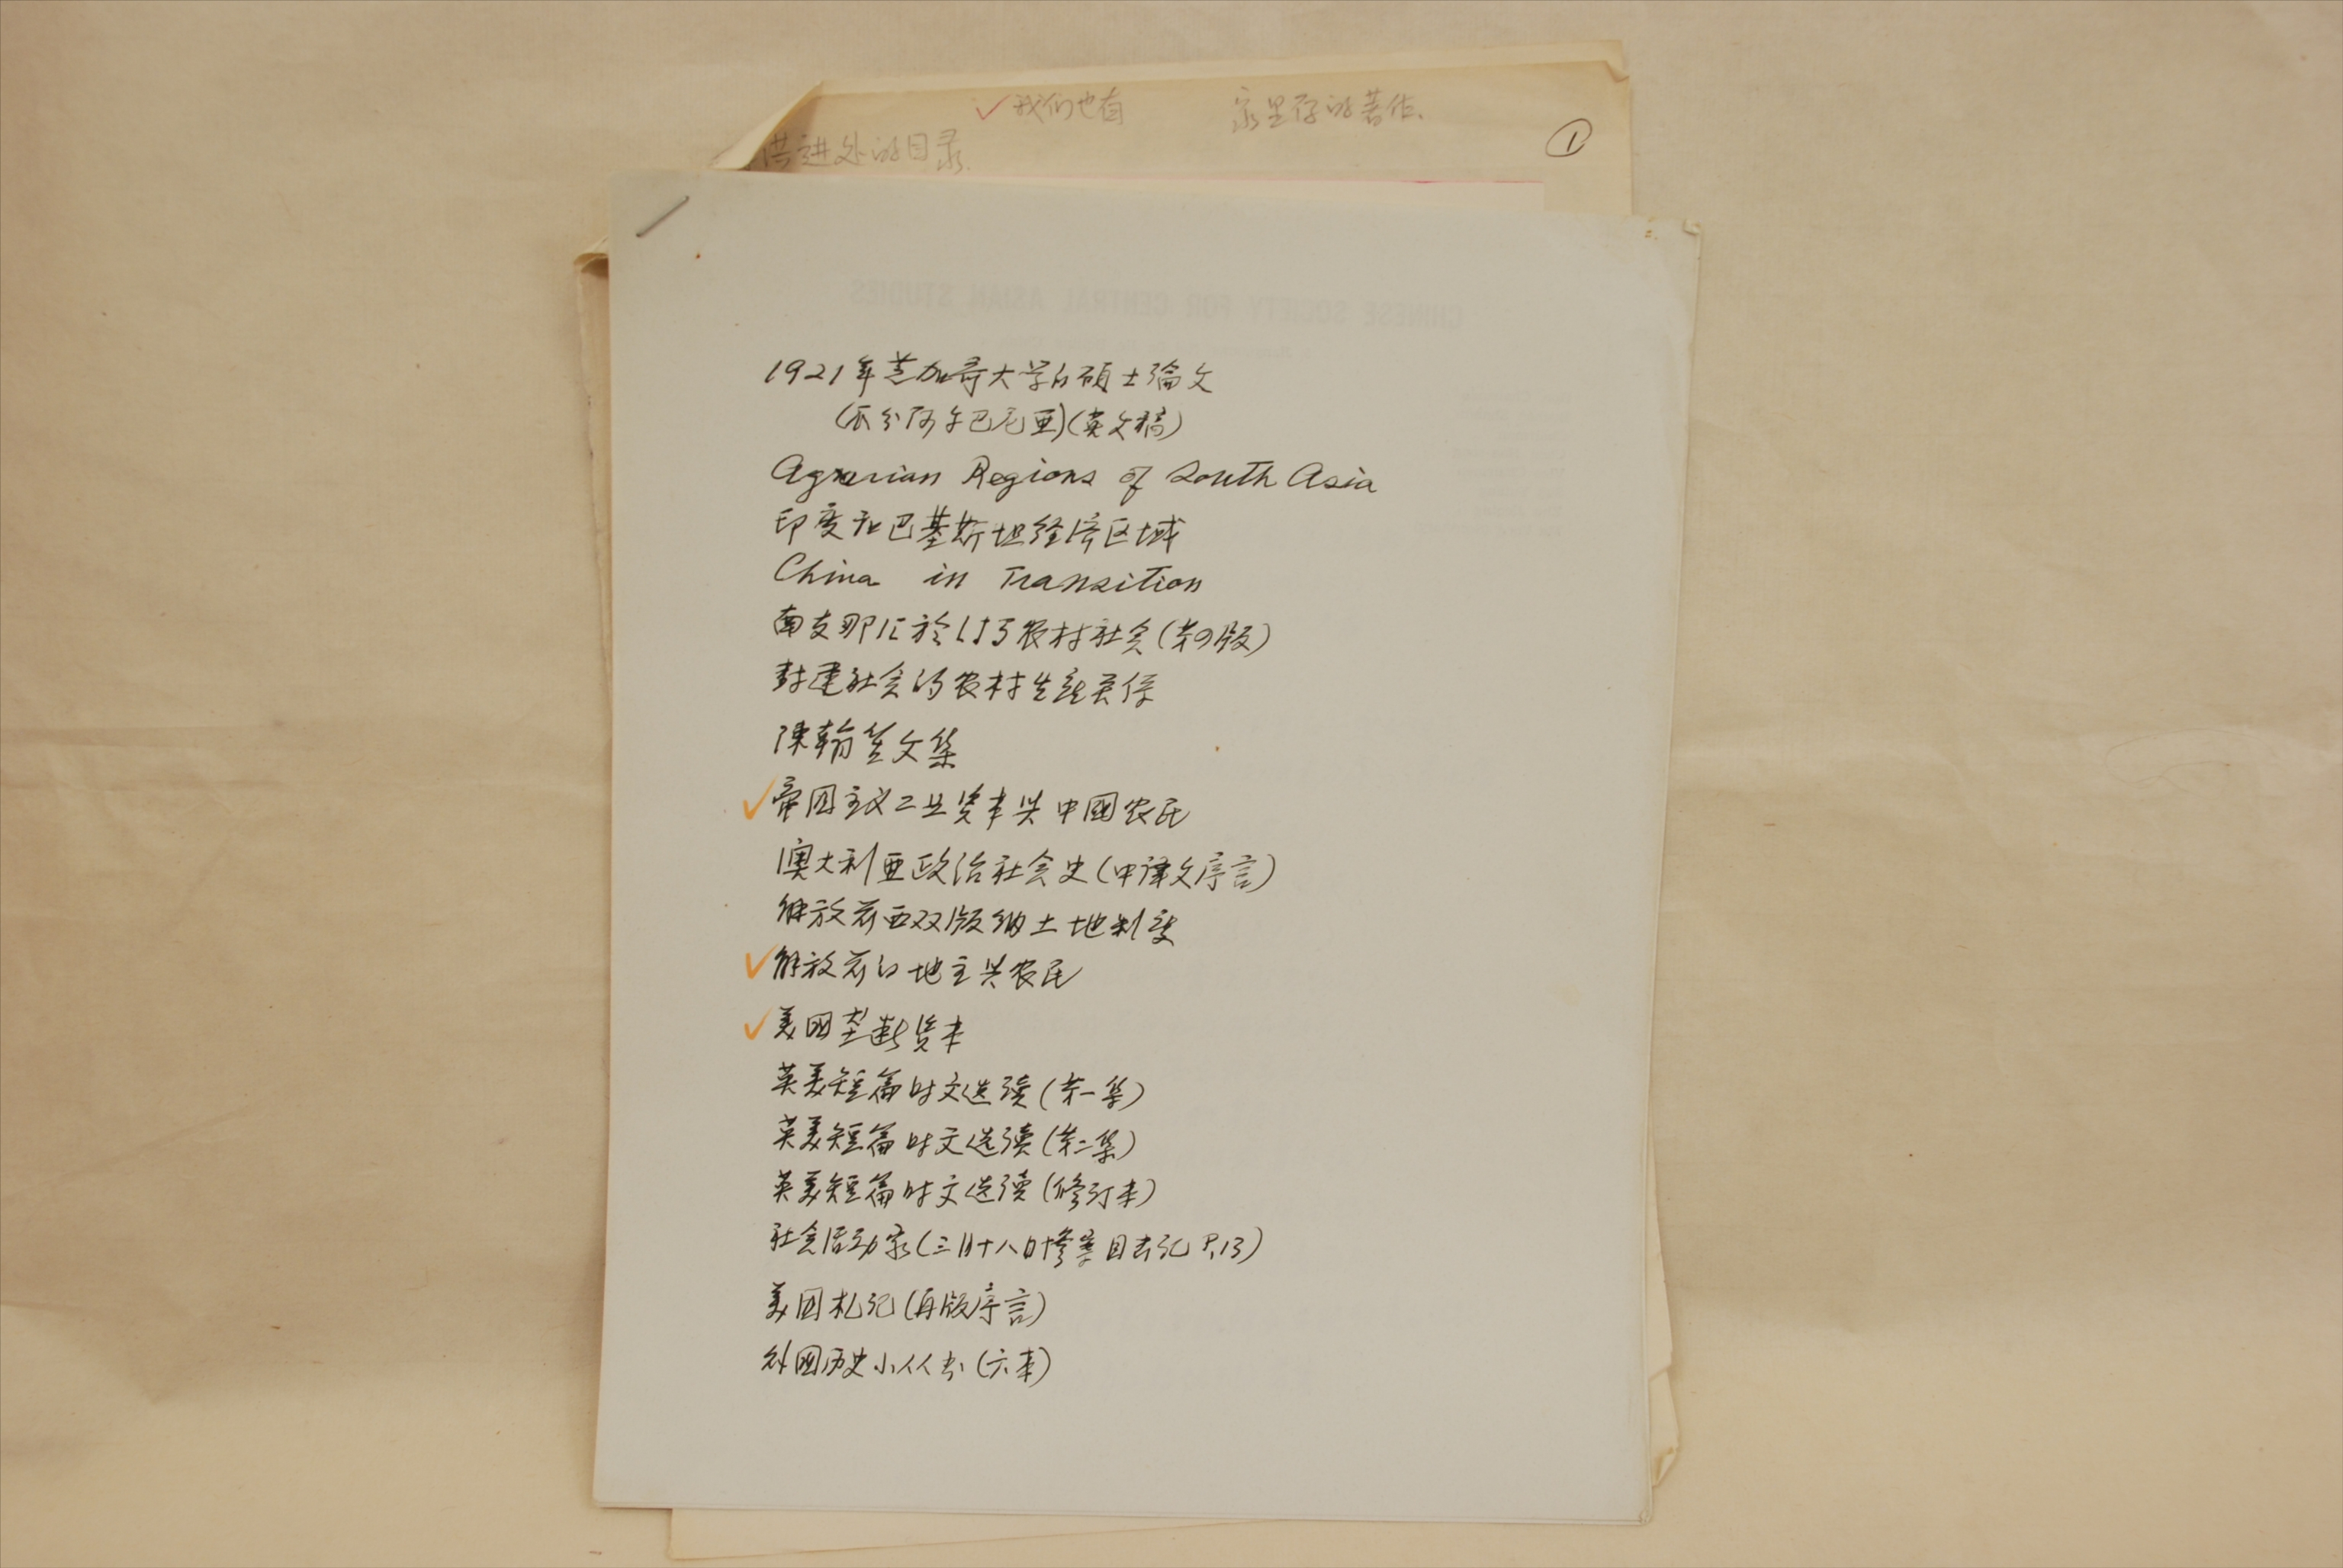 ✓我们也有 家里存的著作.
洪进处的目录.
①
CHINESE SOCIETY FOR CENTRAL ASIAN STUDIES
1921年芝加哥大学的碩士論文
(瓜分阿尔巴尼亚)(英文稿)
Agrarian Regions of South Asia
印度和巴基斯坦经济区域
China in Transition
南支那に於ける农村社会(第四版)
封建社会的农村生产关系
陳翰笙文集
✓帝国主义工业资本与中國农民
澳大利亚政治社会史(中译文序言)
解放前西双版纳土地制度
✓解放前的地主与农民
✓美国垄断资本
英美短篇时文选读(第一集)
英美短篇时文选读(第二集)
英美短篇时文选读(修订本)
社会活动家(三月十八日惨案目击记 P.13)
美国札记(再版序言)
外国历史小丛书(六本)